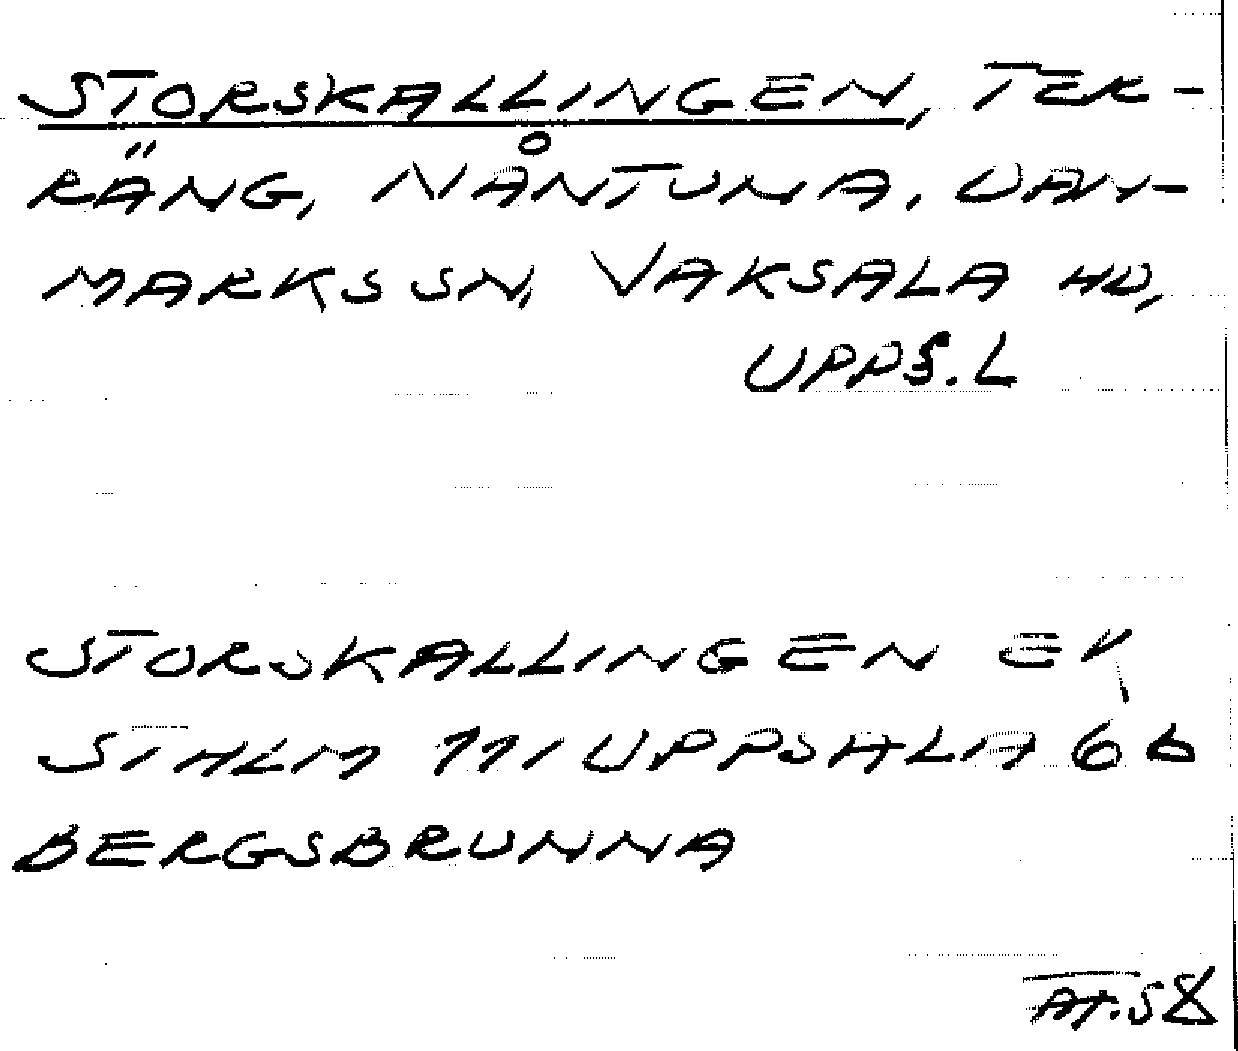 STORSKALLINGEN, TER-
RÄNG, NÅNTUNA, DAN-
MARKS SN, VAKSALA HD,
UPPS. L
STORSKALLINGEN EK
STHLM 11 I UPPSALA 6 b
BERGSBRUNNA
AT. 58